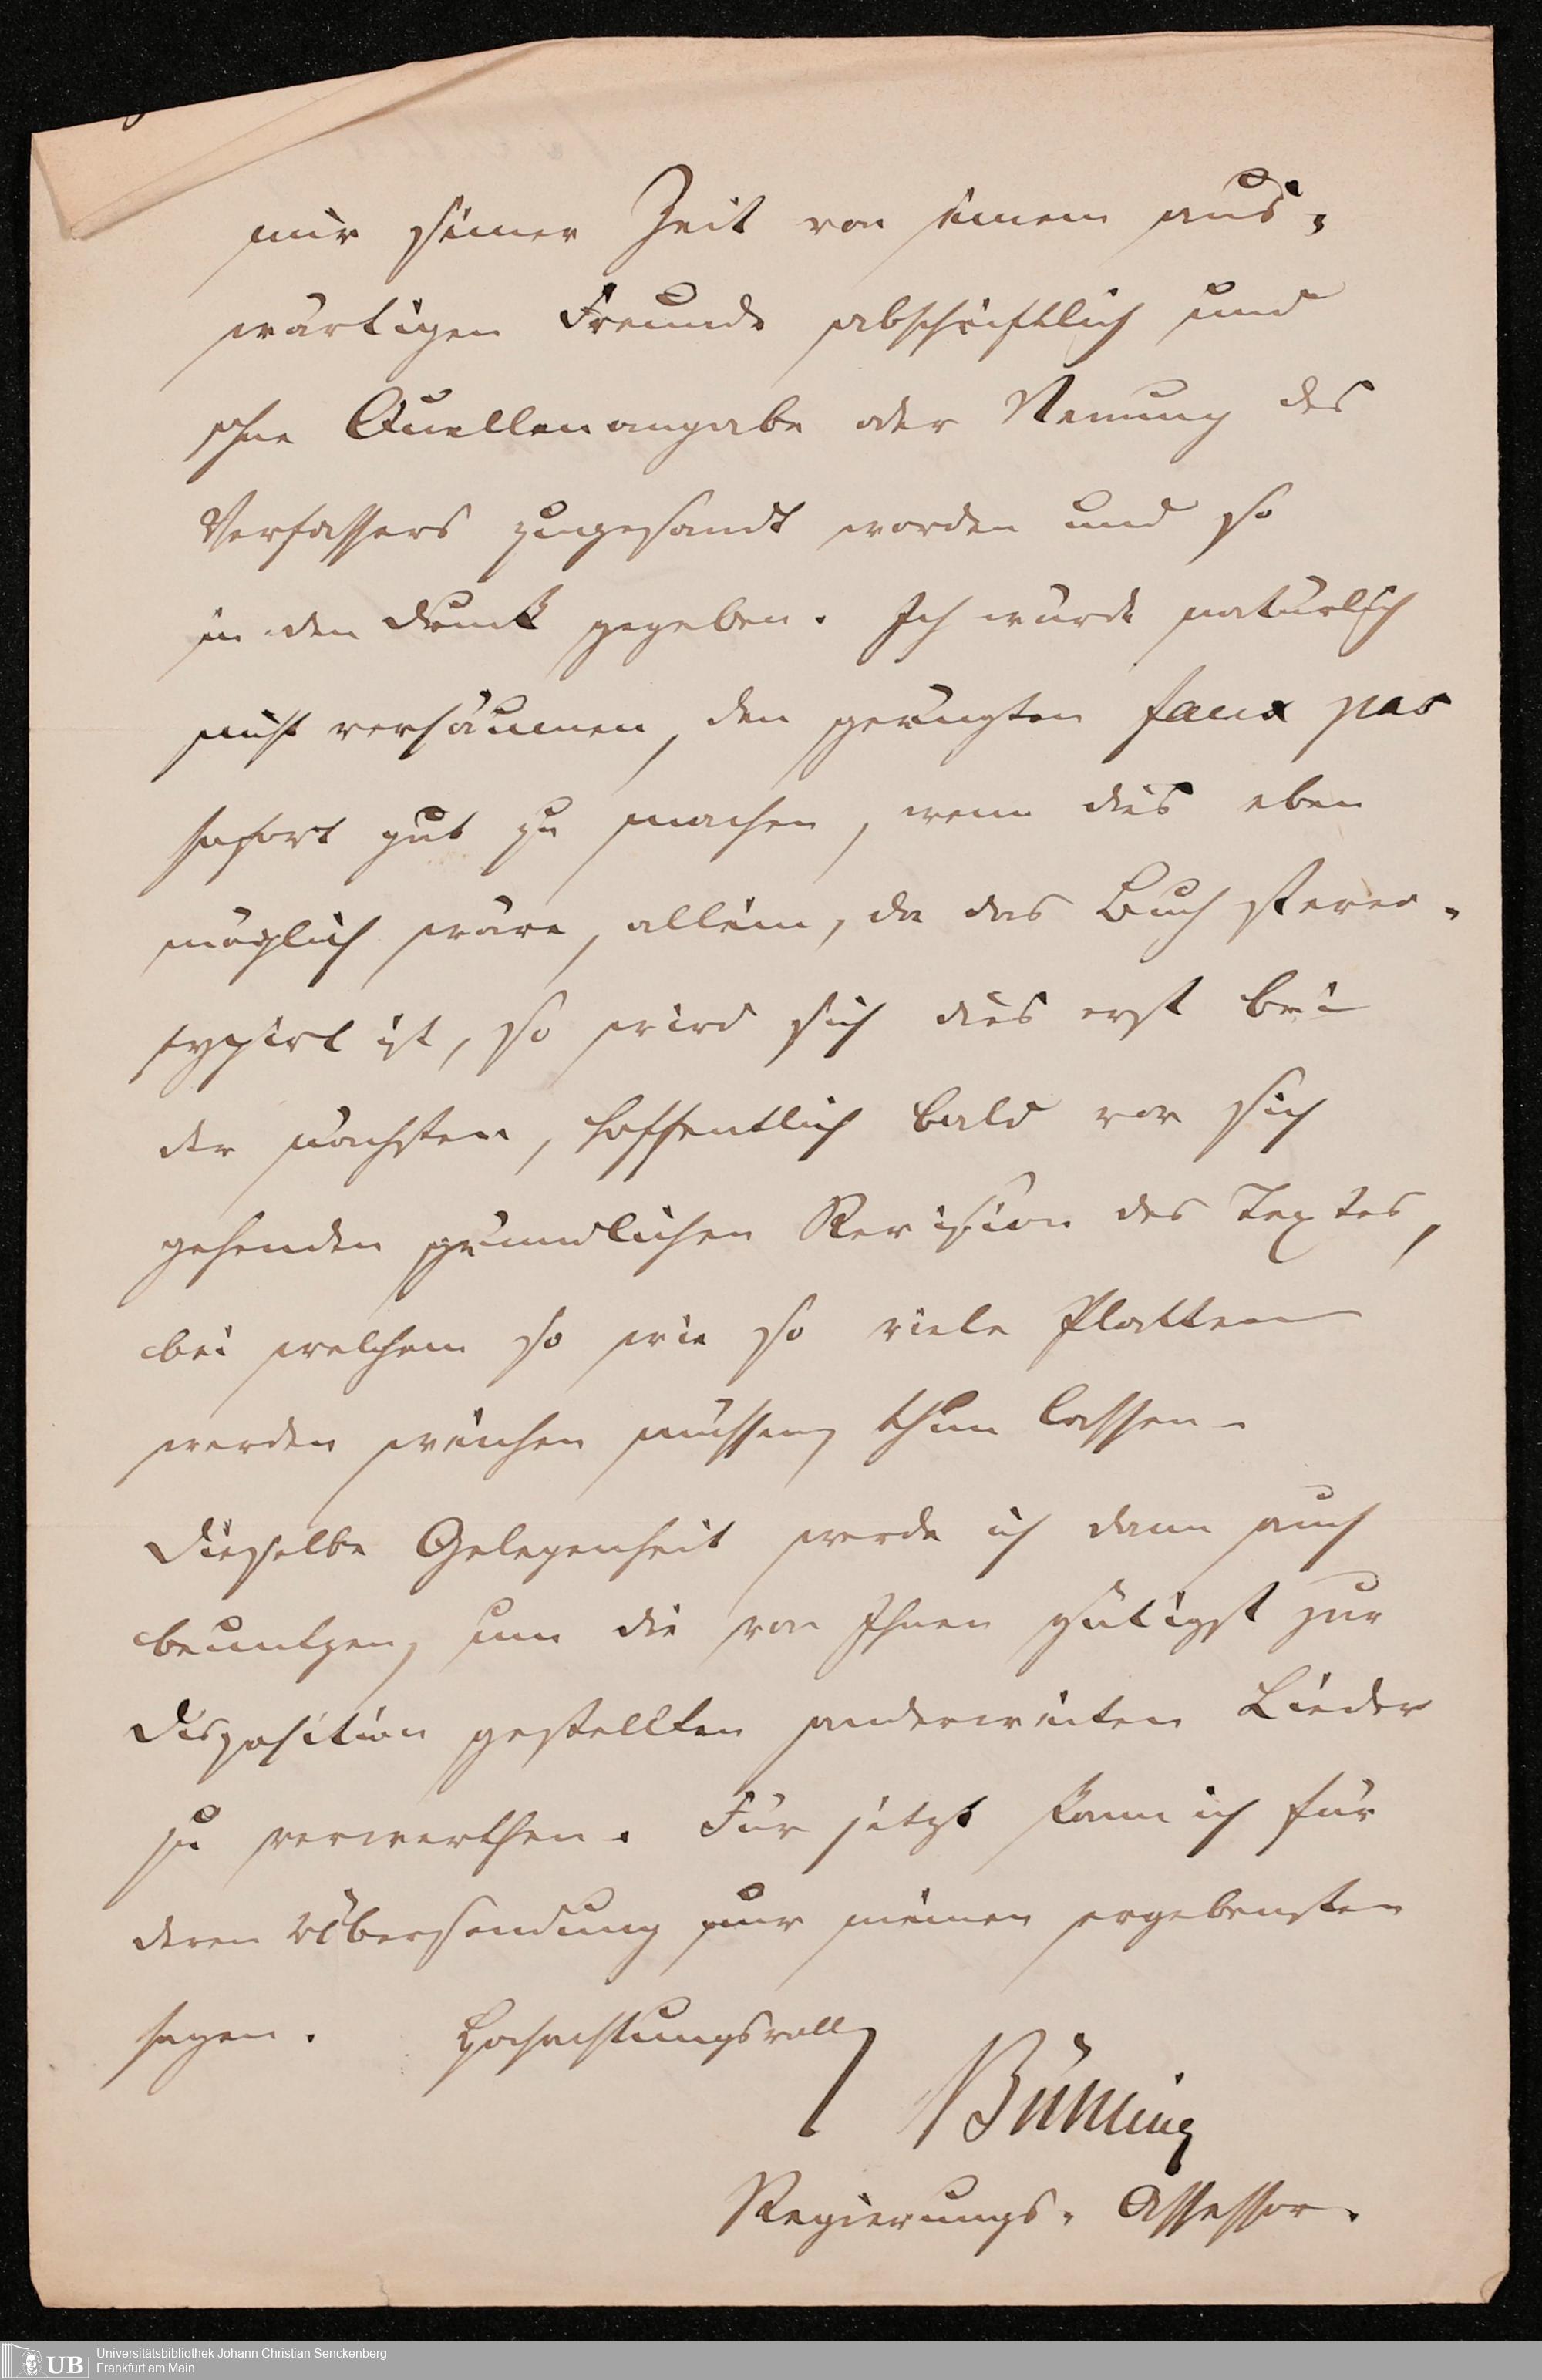 mir seiner Zeit von einem aus-
wärtigen Freunde abschriftlich und
ohne Quellenangabe oder Nennung des
Verfassers zugesandt worden und so
in den Druck gegeben. Ich würde natürlich
nicht versäumen, den gerügten faux pas
sofort gut zu machen, wenn dies eben
möglich wäre, allein, da das Buch stereo-
typirt ist, so wird sich dies erst bei
der nächsten, hoffentlich bald vor sich
gehenden gründlichen Revision des Textes,
bei welchem so wie so viele Platten
werden weichen müssen, thun lassen.
Dieselbe Gelegenheit werde ich dann auch
benutzen, um die von Ihnen gütigst zur
Disposition gestellten anderweiten Lieder
zu verwerthen. Für jetzt kann ich für
deren Übersendung nur meinen ergebensten
sagen. Hochachtungsvoll
Bünting
Regierungs-Assessor.
UB Universitätsbibliothek Johann Christian Senckenberg
Frankfurt am Main